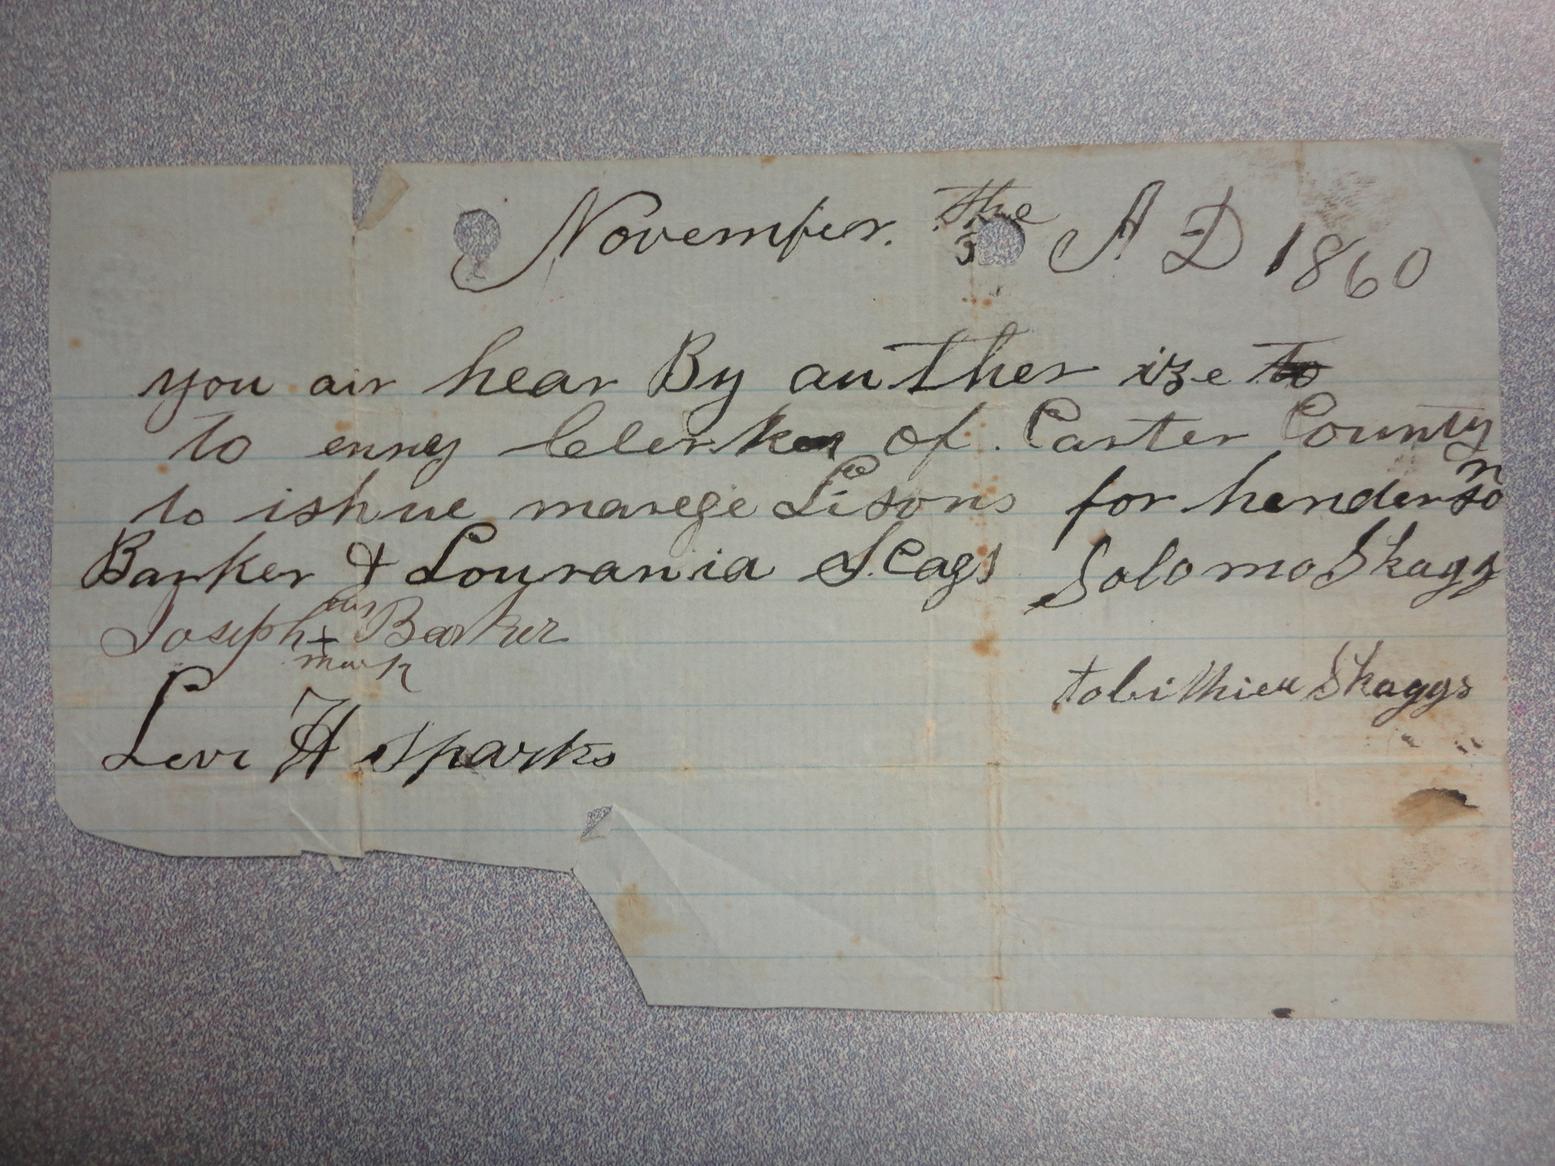 November. the 3 A D 1860
you air hear By auther ize
to enny Clerk of. Carter County
to ishue marege Lisons for henderson
Barker & Lourania Scags Solomo Skaggs
Joseph his + mark Barker
tobithieu Skaggs
Levi H Sparks